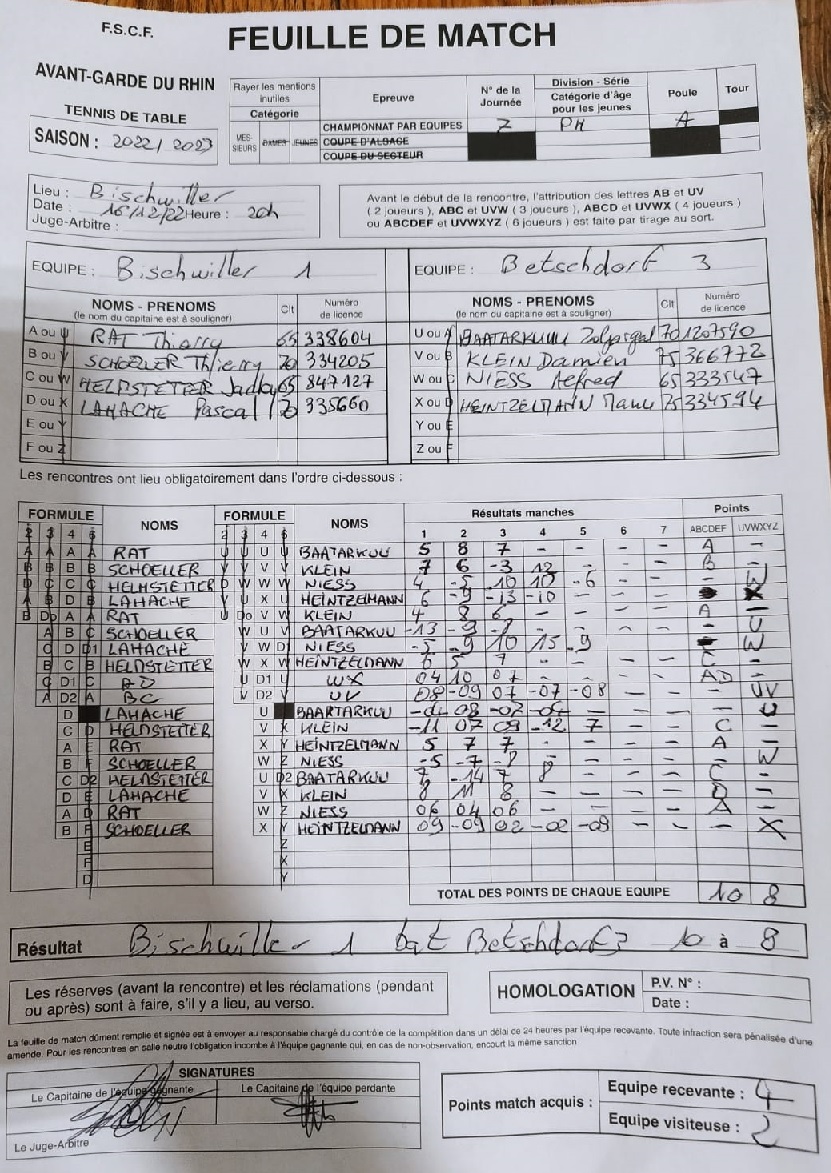 F.S.C.F.
FEUILLE DE MATCH
AVANT-GARDE DU RHIN
TENNIS DE TABLE
SAISON : 2022/2023
Rayer les mentions inutiles
Catégorie
Epreuve
N° de la Journée
Division - Série
Catégorie d'âge pour les jeunes
Poule
Tour
MESSIEURS DAMES JEUNES
CHAMPIONNAT PAR EQUIPES 7 PH A
COUPE D'ALSACE
COUPE DU SECTEUR
Lieu : Bischwiller
Date : 16/12/22 Heure : 20h
Juge-Arbitre :
Avant le début de la rencontre, l'attribution des lettres AB et UV
( 2 joueurs ), ABC et UVW ( 3 joueurs ), ABCD et UVWX ( 4 joueurs )
ou ABCDEF et UVWXYZ ( 6 joueurs ) est faite par tirage au sort.
EQUIPE : Bischwiller 1
EQUIPE : Betschdorf 3
NOMS - PRENOMS (le nom du capitaine est à souligner) Clt Numéro de licence
NOMS - PRENOMS (le nom du capitaine est à souligner) Clt Numéro de licence
A ou U RAT Thierry 65 338604
U ou A BAATARKUU 70 1207590
B ou V SCHOELLER Thierry 70 334205
V ou B KLEIN Damien 75 366772
C ou W HELDSTETTER 65 847127
W ou C NIESS Alfred 65 333547
D ou X LAHACHE Pascal 70 335660
X ou D HEINTZELMANN 75 334594
E ou Y
Y ou E
F ou Z
Z ou F
Les rencontres ont lieu obligatoirement dans l'ordre ci-dessous :
FORMULE NOMS FORMULE NOMS Résultats manches Points
2 3 4 6 2 3 4 6 1 2 3 4 5 6 7 ABCDEF UVWXYZ
A A A A RAT U U U U BAATARKUU 5 8 7 - - - - A -
B B B B SCHOELLER V V V V KLEIN 7 6 -3 12 - - - B -
C C C HELMSTETTER W W W NIESS 4 -5 10 10 -6 - - - W
B D B LAHACHE U X U HEINTZELMANN 6 -9 -13 -10 - - - X
B Do A A RAT Do V W KLEIN 4 8 6 - - - - A -
A B C SCHOELLER W U V BAATARKUU -13 -9 -8 - - - - - U
C D D1 LAHACHE V W D1 NIESS -5 -9 10 15 -9 - - W
B C B HELDSTETTER W X W HEINTZELMANN 6 5 7 - - - - C -
C D1 C AD U D1 U WX 04 10 07 - - - - AD -
A D2 A BC V D2 V UV 08 -09 07 -07 -08 - - - UV
D LAHACHE U BAARTARKUU 08 -02 - - - U
C D HELDSTETTER V X KLEIN -11 07 09 -12 7 - - C -
A E RAT X Y HEINTZELMANN 5 7 7 - - - - A -
B F SCHOELLER W Z NIESS -5 -7 -8 - - - - - W
C D2 HELDSTETTER U D2 BAATARKUU 7 -14 7 8 - - - C -
D E LAHACHE V X KLEIN 8 11 8 - - - - D -
A D RAT W Z NIESS 06 04 06 - - - - A -
B F SCHOELLER X Y HEINTZELMANN 09 -09 02 -02 -09 - - - X
E Z
F X
D Y
TOTAL DES POINTS DE CHAQUE EQUIPE 10 8
Résultat Bischwiller 1 bat Betschdorf 3 10 à 8
Les réserves (avant la rencontre) et les réclamations (pendant
ou après) sont à faire, s'il y a lieu, au verso.
HOMOLOGATION
P.V. N° :
Date :
La feuille de match dûment remplie et signée est à envoyer au responsable chargé du contrôle de la compétition dans un délai de 24 heures par l'équipe recevante. Toute infraction sera pénalisée d'une
amende. Pour les rencontres en salle neutre l'obligation incombe à l'équipe gagnante qui, en cas de non-observation, encourt la même sanction
SIGNATURES
Le Capitaine de l'équipe gagnante
Le Capitaine de l'équipe perdante
Le Juge-Arbitre
Points match acquis :
Equipe recevante : 4
Equipe visiteuse : 2